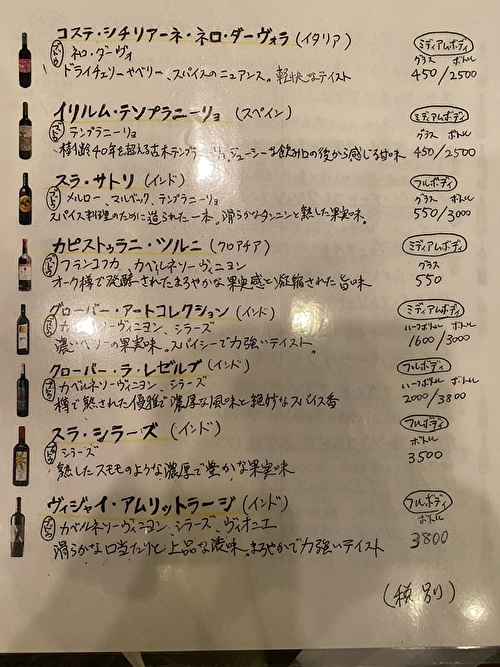 コステ・シチリアーネ・ネロ・ダーヴォラ (イタリア) ミディアムボディ
ブドウ ネロ・ダーヴィ グラス ボトル
ドライチェリーやベリー、スパイスのニュアンス。軽快なテイスト 450/2500
イリルム・テンプラニーリョ (スペイン) ミディアムボディ
ブドウ テンプラニーリョ グラス ボトル
樹齢40年を超える古木テンプラニーリョ、ジューシーな飲み口の後から感じる甘味 450/2500
スラ・サトリ (インド) フルボディ
ブドウ メルロー、マルベック、テンプラニーリョ グラス ボトル
スパイス料理のために造られた一本。滑らかなタンニンと熟した果実味。 550/3000
カピストゥラニ・ツルニ (クロアチア) ミディアムボディ
ブドウ フランコフカ、カベルネソーヴィニヨン グラス
オーク樽で発酵されたまろやかな果実感と凝縮された旨味 550
グローバー・アートコレクション (インド) ミディアムボディ
ブドウ カベルネソーヴィニヨン、シラーズ ハーフボトル ボトル
濃いベリーの果実味。スパイシーで力強いテイスト。 1600/3000
グローバー・ラ・レゼルブ (インド) フルボディ
ブドウ カベルネソーヴィニヨン、シラーズ ハーフボトル ボトル
樽で熟された優雅で濃厚な風味と絶妙なスパイス香 2000/3800
スラ・シラーズ (インド) フルボディ
ブドウ シラーズ ボトル
熟したスモモのような濃厚で豊かな果実味 3500
ヴィジャイ・アムリットラージ (インド) フルボディ
ブドウ カベルネソーヴィニヨン、シラーズ、ヴィオニエ ボトル
滑らかな口当たりと上品な渋味。まろやかで力強いテイスト 3800
(税別)